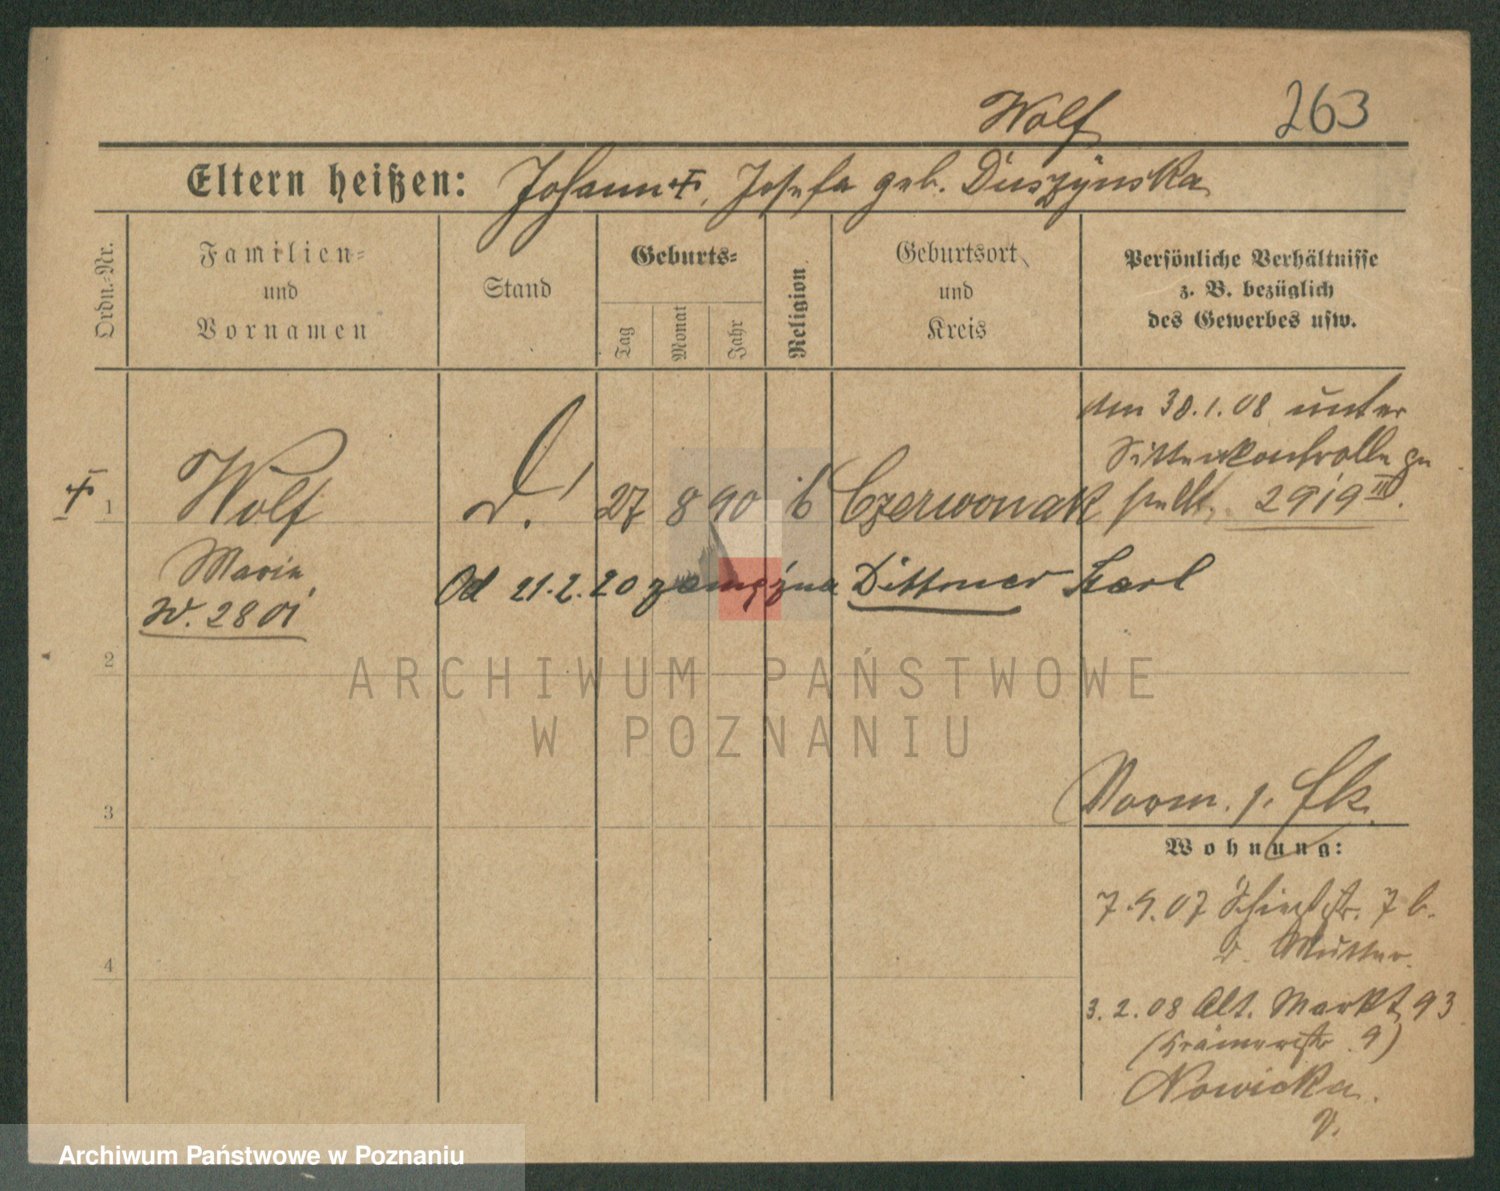 Wolf
263
Eltern heißen: Johann †, Josefa geb. Duszynska
Ordn.-Nr.
Familien-
und
Vornamen
Stand
Geburts-
Tag
Monat
Jahr
Religion
Geburtsort
und
Kreis
Persönliche Verhältnisse
z. B. bezüglich
des Gewerbes usw.
am 30.1.08 unter
Sittenkontrolle ge
stellt. 2919 III.
1
Wolf
D.
27 8 90
Czerwonak
Marie
W. 2801
Od 21.2.20 zamężna Dittmer Karl
2
3
4
Wohnung:
7.9.07 7 b.
b. Mutter.
3.2.08 Alt. Markt 93
(Krämerstr. 9)
Nowicka.
V.
ARCHIWUM PAŃSTWOWE
W POZNANIU
Archiwum Państwowe w Poznaniu